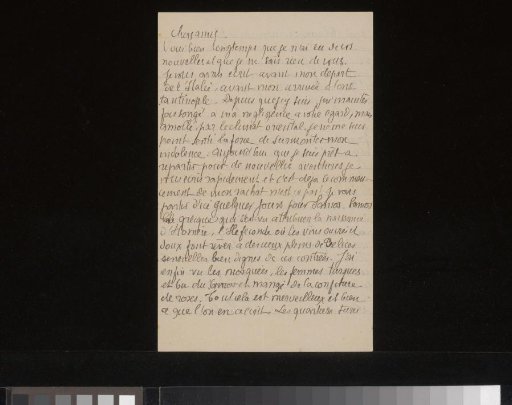 Chers amis.
Voici bien longtemps que je n'ai eu de vos
nouvelles et que je ne sais rien de vous.
Je vous avais écrit avant mon départ
de l'Italie avant mon arrivée à Cons
tantinople. Depuis que j'y suis, j'ai maintes
fois songé à ma négligence à votre égard, mais
amolli par le climat oriental, je ne me suis
point senti la force de surmonter mon
indolence. Aujourd'hui que je suis prêt à
repartir pour de nouvelles aventures je
rapidement et c'est déjà le commen
cement de mon rachat n'est ce pas, je vais
partir d'ici quelques jours pour Samos. Samos
île grecque qui se vit attribuer la naissance
d'Homère, l'île féconde où les vins cuirés et
doux font rêver à des cieux pleins de délices
sensuelles bien dignes de ces contrées. J'ai
enfin vu les mosquées, les femmes turques
et bu du et mangé de la confiture
de roses. Tout cela est merveilleux et bien
ce que l'on en écrit. Les quartiers turcs